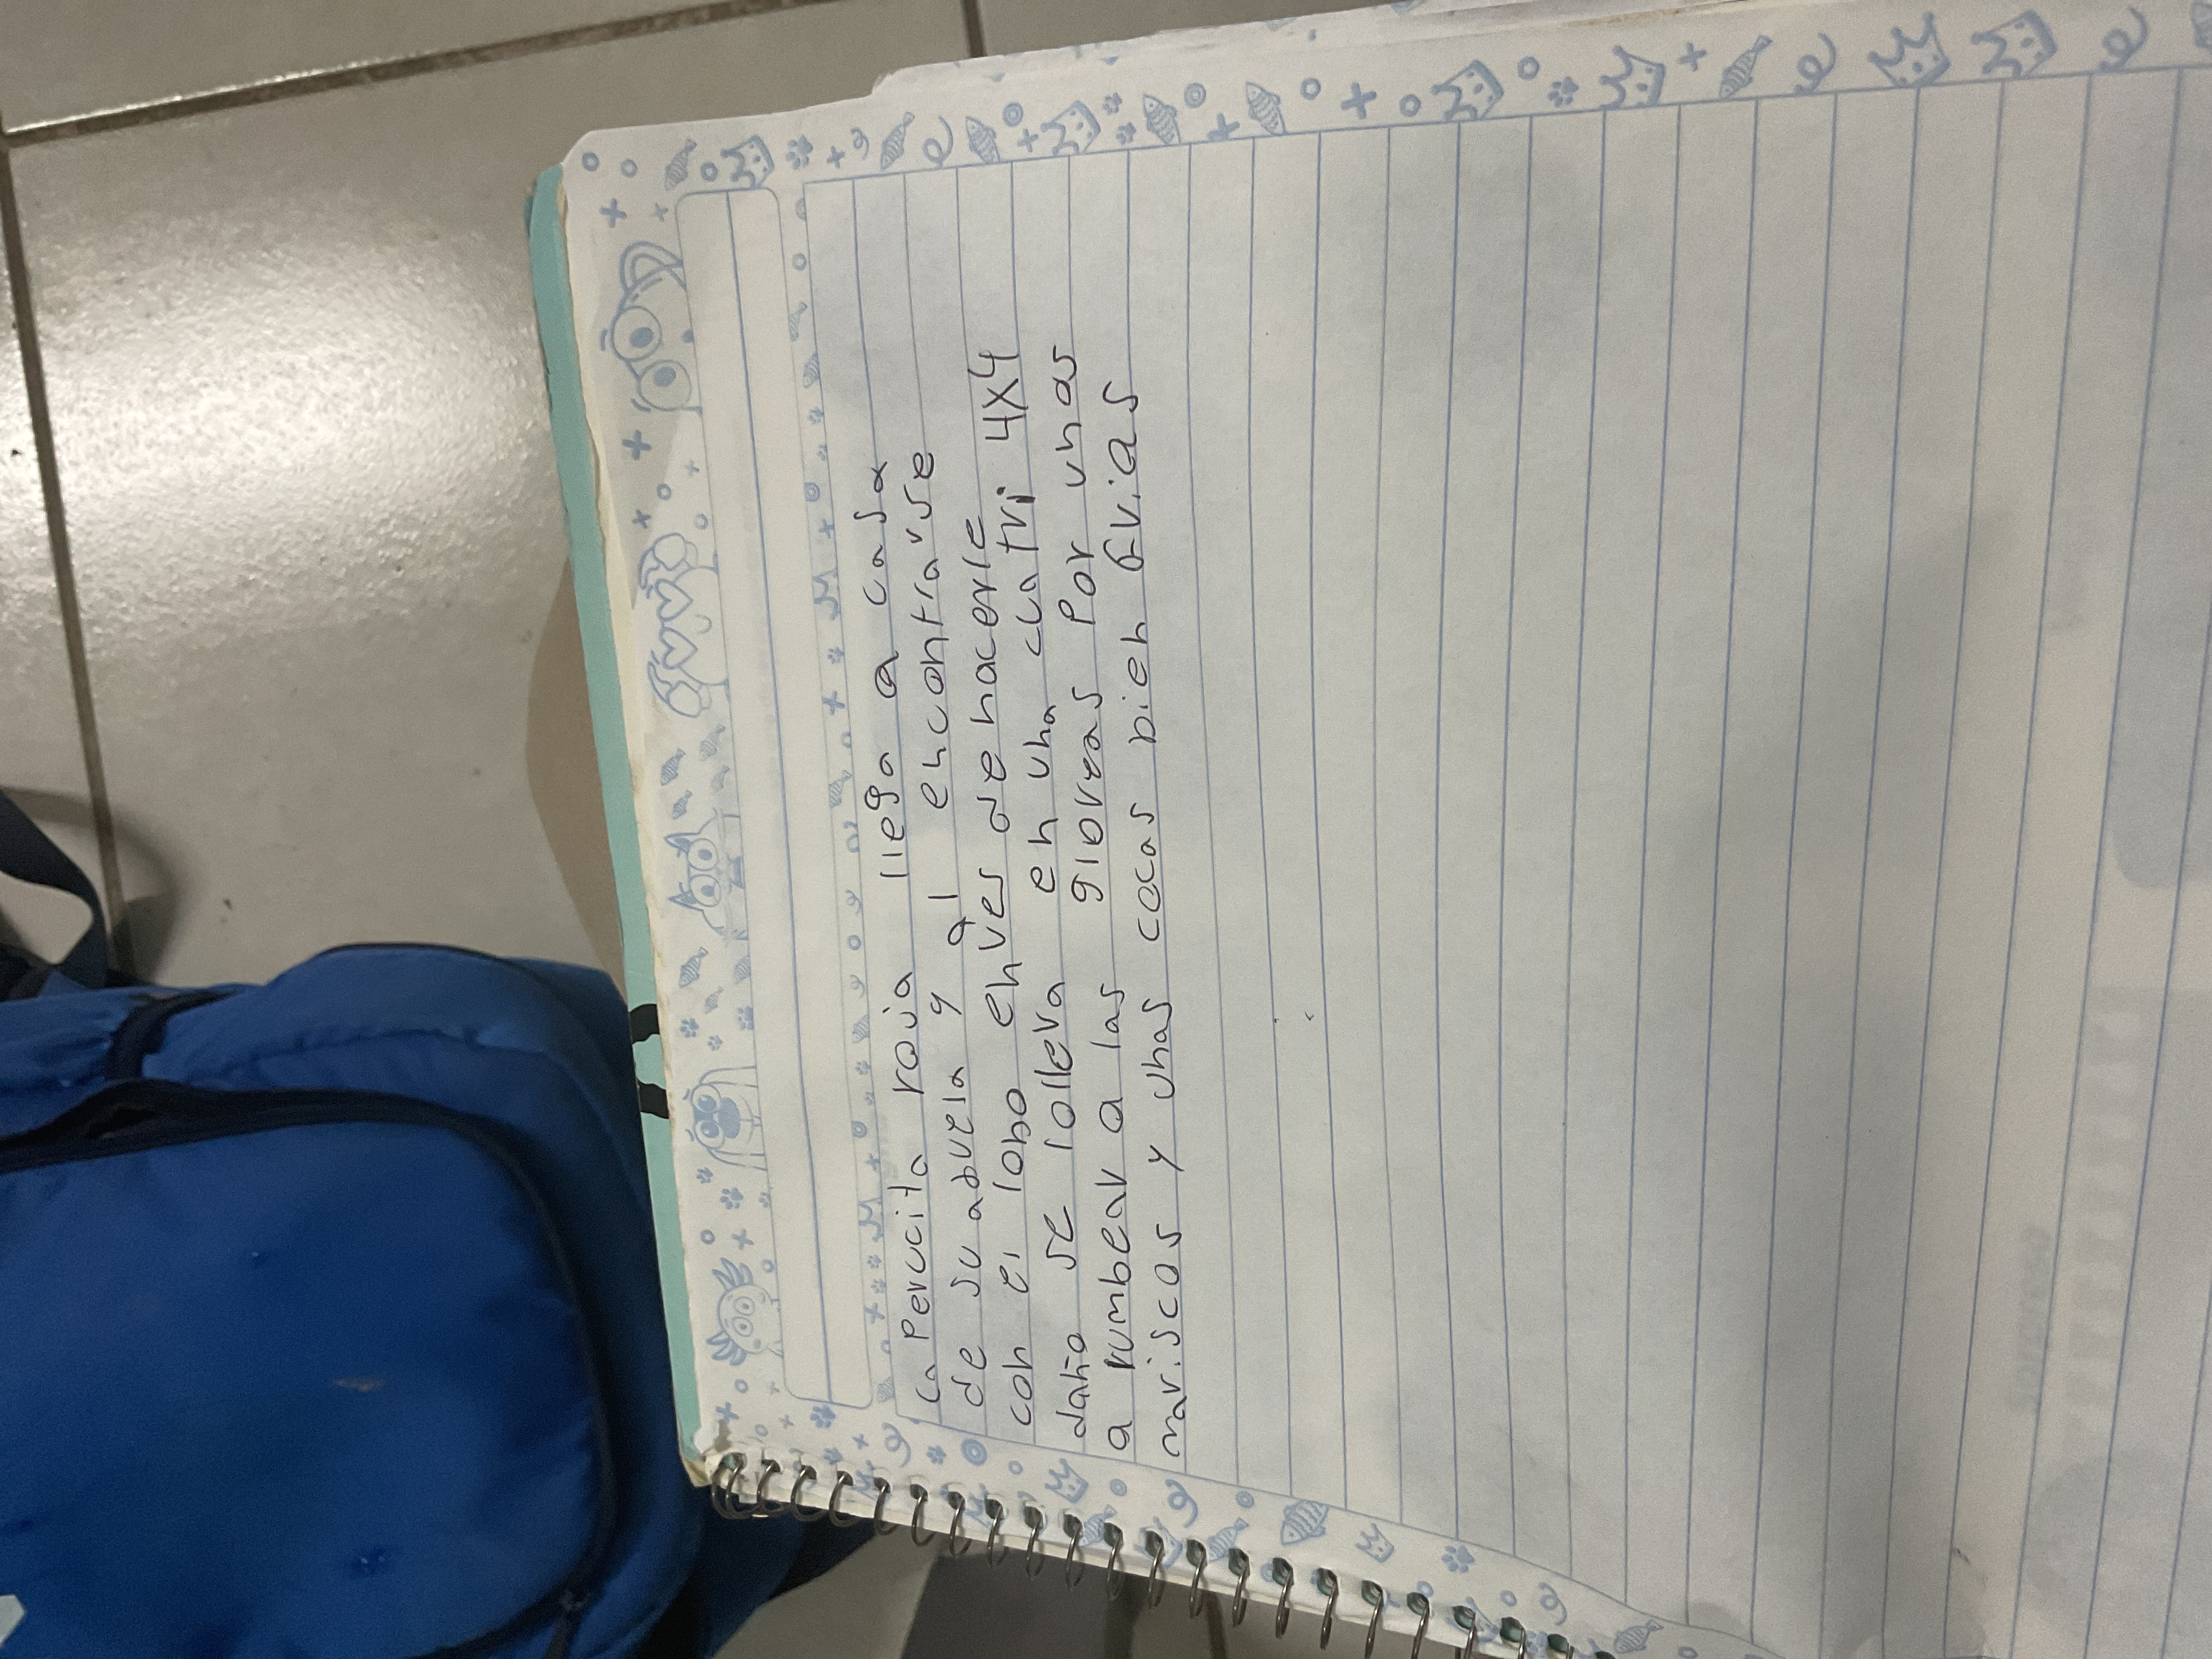 Caperucita roja llega a casa
de su abuela y al encontrarse
con el lobo enves de hacerle
daño se lolleva en una cuatri 4x4
a rumbear a las glorias Por unos
mariscos y unas cocas bien frias